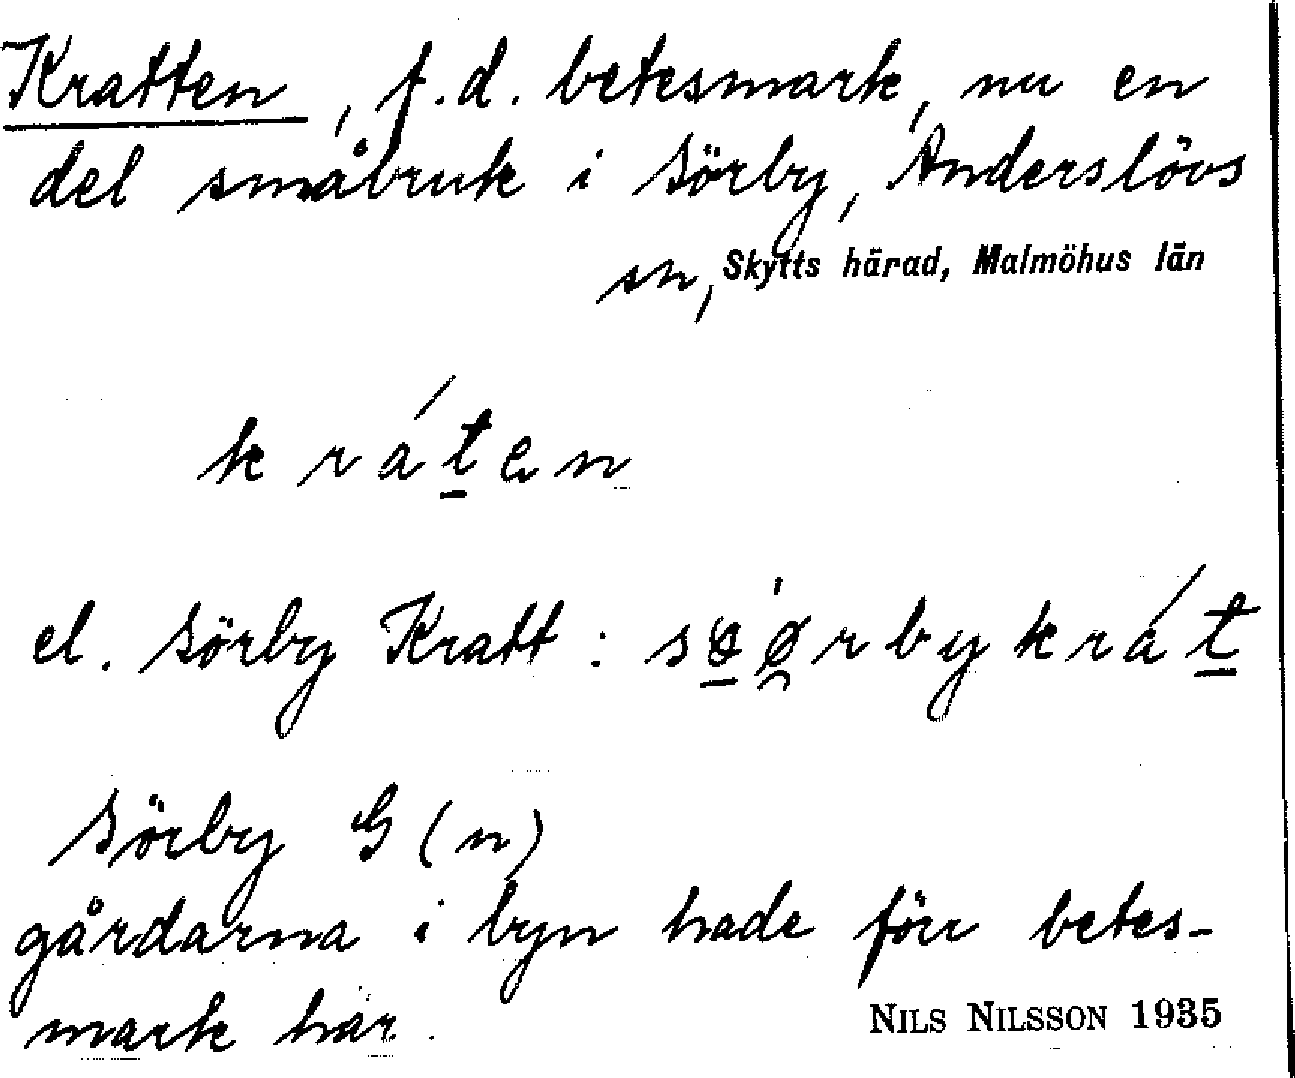 Kratten, f.d. betesmark, nu en
del småbruk i Sörby, Anderslövs
sn, Skytts härad, Malmöhus län
kráten
el. Sörby Kratt: søørbykrát
Sörby G (n)
gårdarna i byn hade förr betes-
mark här.
NILS NILSSON 1935